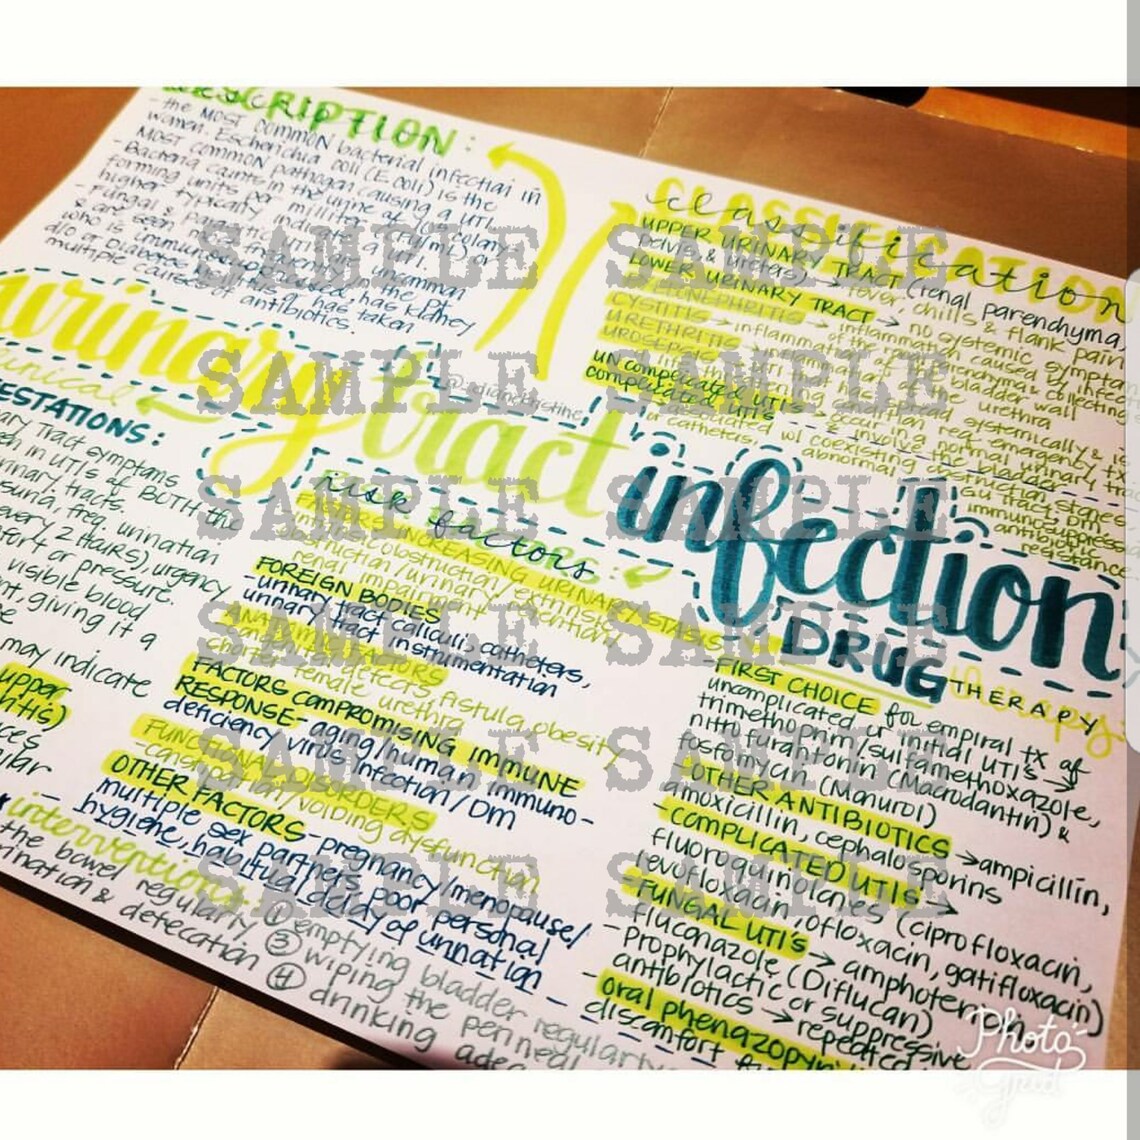 DESCRIPTION:
- the MOST COMMON bacterial infection in
women. Escherichia coli (E. coli) is the
MOST common pathogen causing a UTI.
- Bacteria counts in the urine of
forming units per milliliter (cfu/ml) or
higher typically indicate a UTI.
- Fungal & parasitic UTI's are uncommon
& are seen most frequently in the pt.
who is immunosuppressed, has kidney
d/o or Diabetes, or has taken
multiple courses of antibiotics.
classification
CLASSIFICATION
UPPER URINARY TRACT (renal parenchyma,
pelvis & ureters) → fever, chills & flank pain
LOWER URINARY TRACT → no systemic symptoms
PYELONEPHRITIS → inflammation caused by infect
of the renal parenchyma & collecting
CYSTITIS → inflammation of the bladder wall
URETHRITIS → inflammation of the urethra
UROSEPSIS → UTI
systemically & is
emergency tx
uncomplicated UTI's → occur in normal urinary tra
& involve the bladder
complicated UTI's
coexisting obstruction, stones
or catheters, abnormal GU tract, DM
immunosuppress
antibiotic
resistance
urinary tract infection
clinical
ESTATIONS:
nary Tract symptoms
een in UTI's of BOTH the
urinary tracts.
suria, freq. urination
every 2 hours), urgency
fort or pressure.
visible blood
nt, giving it a
may indicate
upper
itis)
ces
ular
risk factors:
FACTORS INCREASING URINARY STASIS
intrinsic obstruction/extrinsic
obstruction/urinary retention/
renal impairment
FOREIGN BODIES
- urinary tract calculi, catheters,
urinary tract instrumentation
ANATOMIC FACTORS
- congenital defects, fistula, obesity
shorter female urethra
FACTORS COMPROMISING IMMUNE
RESPONSE - aging/human immuno-
deficiency virus infection/DM
FUNCTIONAL DISORDERS
- constipation/voiding dysfunction
OTHER FACTORS - pregnancy/menopause/
multiple sex partners, poor personal
hygiene, habitual delay of urination
DRUG THERAPY
therapy:
- FIRST CHOICE for empiral tx of
uncomplicated or initial UTI's →
trimethoprim/sulfamethoxazole,
nitrofurantonin (Macrodantin) &
fosfomycin (Monurol)
- OTHER ANTIBIOTICS → ampicillin,
amoxicillin, cephalosporins
- COMPLICATED UTI's →
fluoroquinolanes (ciprofloxacin,
levofloxacin, ofloxacin, gatifloxacin)
- FUNGAL UTI's → amphotericin
fluconazole (Diflucan)
- Prophylactic or suppressive
antibiotics → repeated
- oral phenazopyri
discomfort
interventions: ① emptying bladder regularly
the bowel regularly ③ wiping the perineal
rination & defecation ④ drinking ade
SAMPLE SAMPLE
SAMPLE SAMPLE
SAMPLE SAMPLE
SAMPLE SAMPLE
SAMPLE SAMPLE
SAMPLE SAMPLE
Photo
Grid